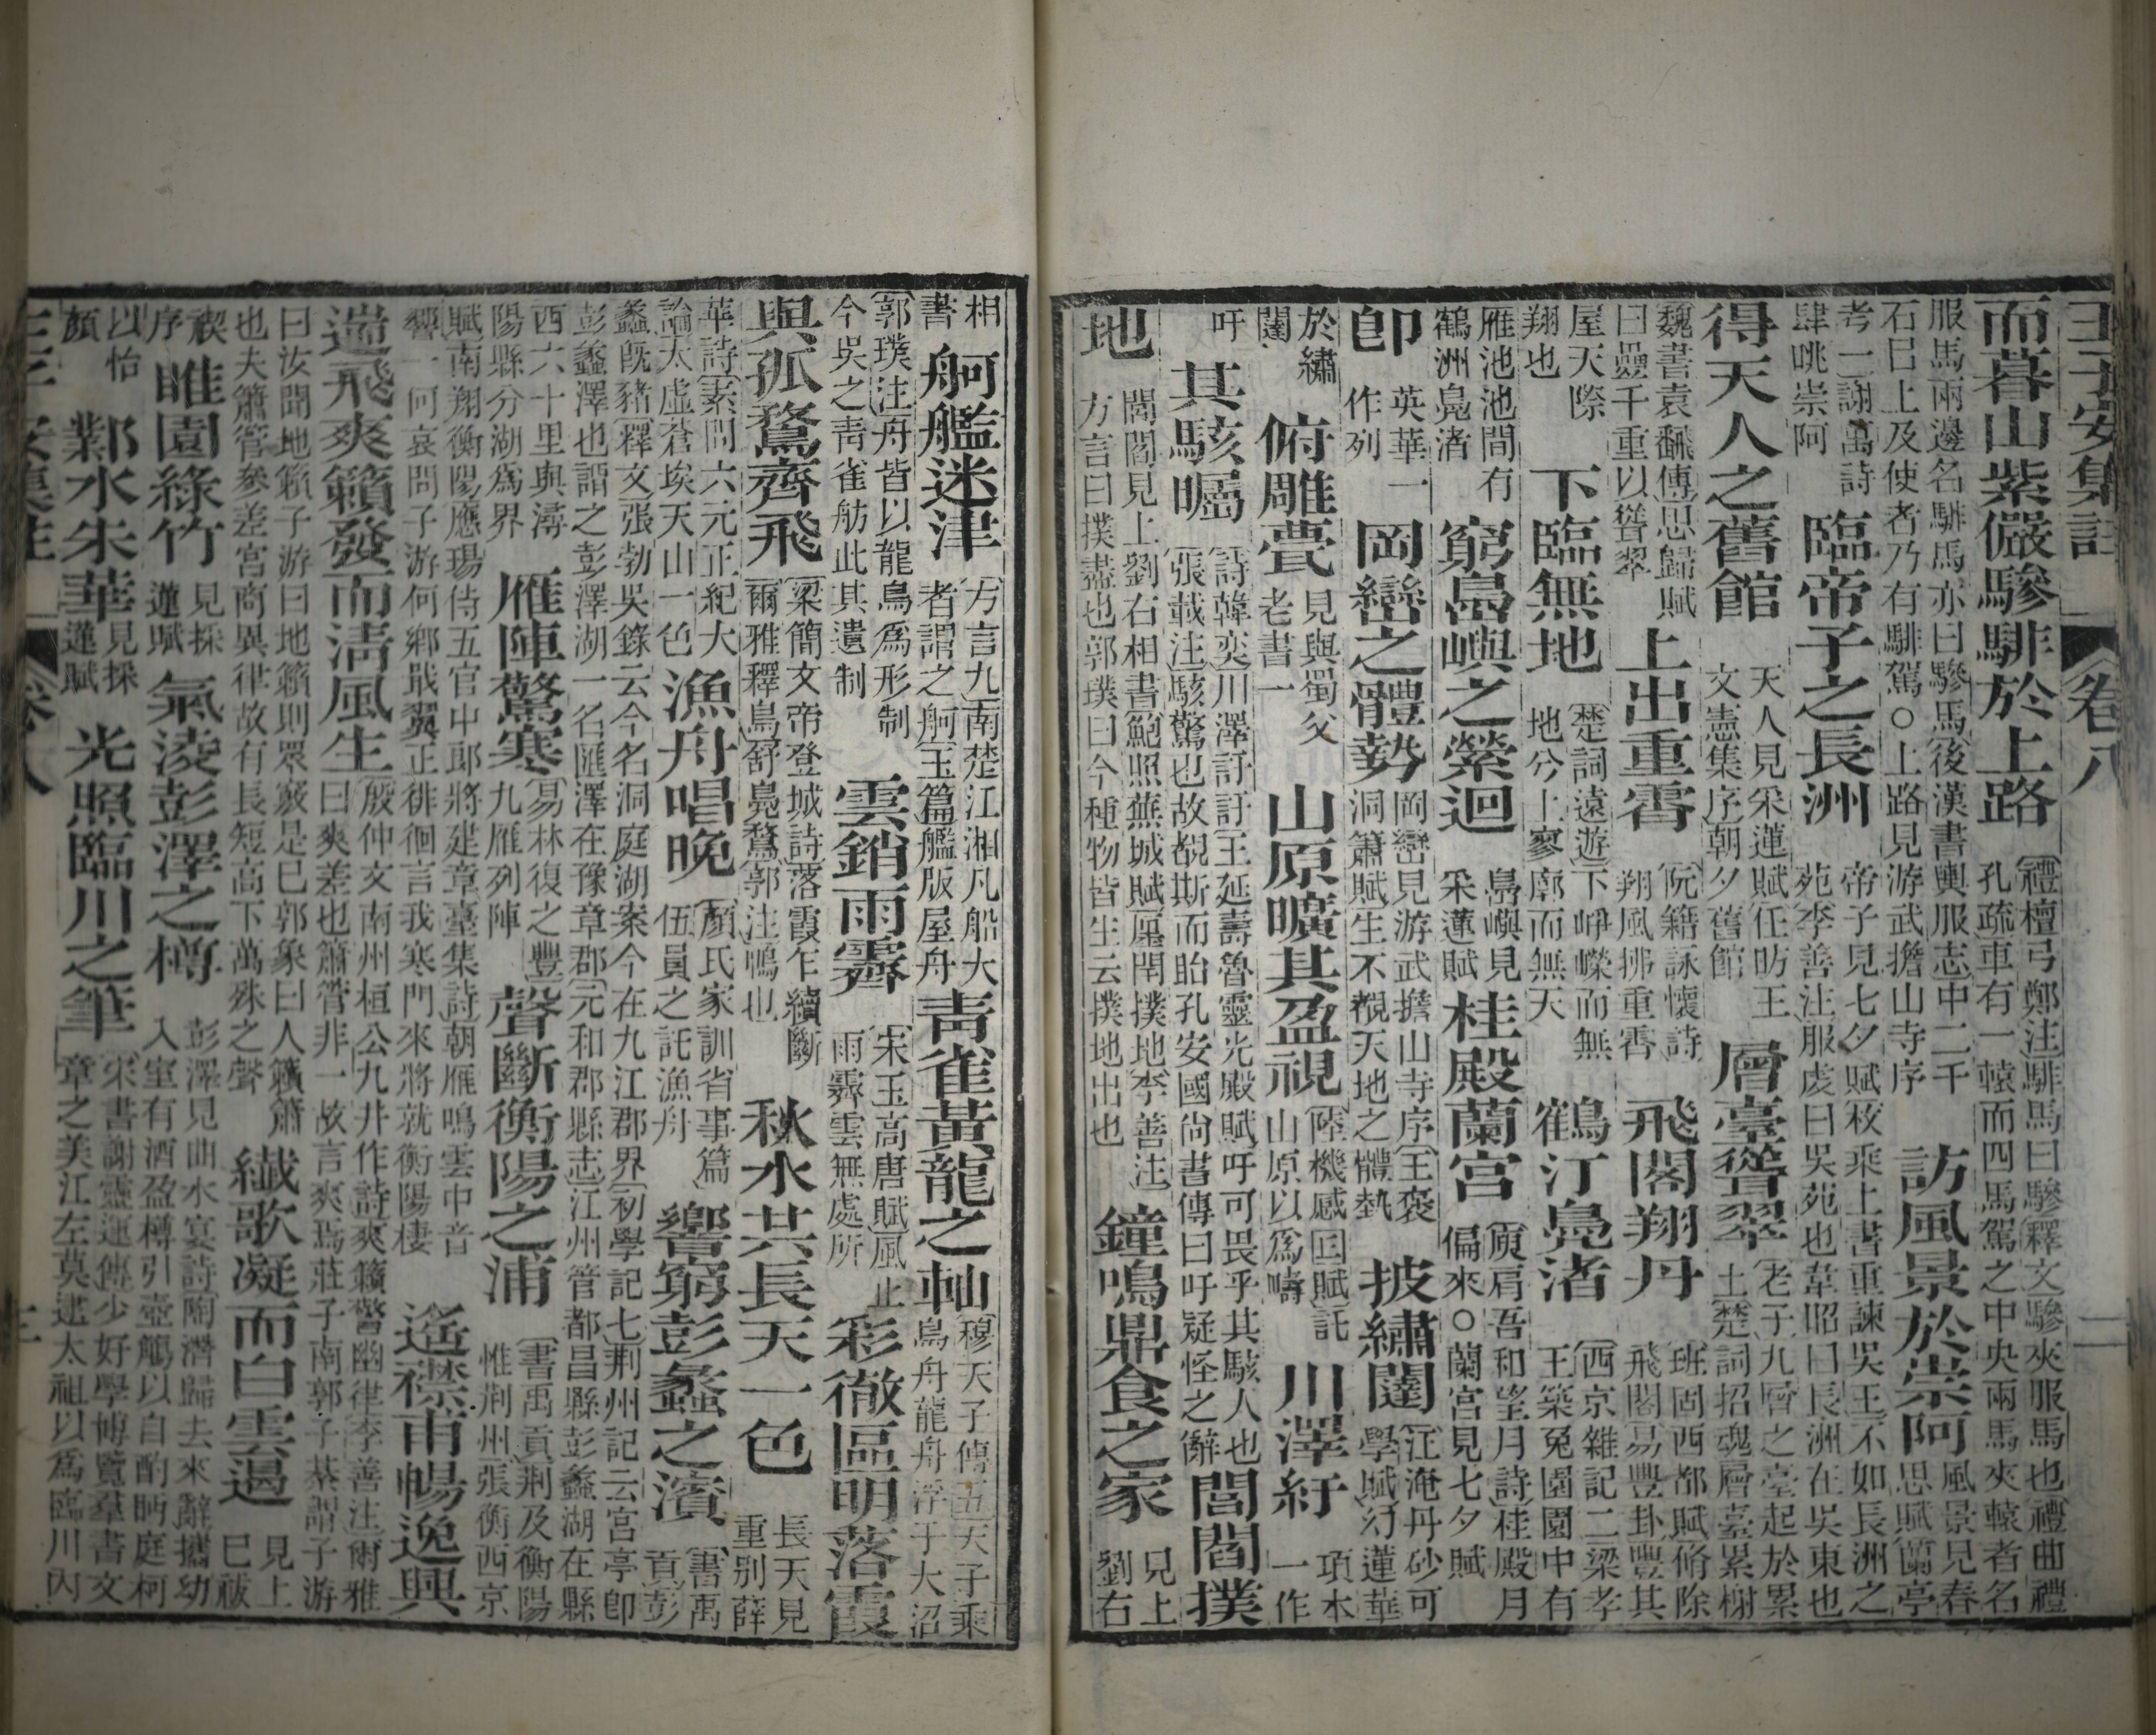 王子安集註 卷八 二
而暮山紫儼驂騑於上路 禮檀弓鄭注騑馬曰驂釋文驂夾服馬也禮曲禮
孔疏車有一轅而四馬駕之中央兩馬夾轅者名
服馬兩邊名騑馬亦曰驂馬後漢書輿服志中二千
石已上及使者乃有騑駕○上路見游武擔山寺序
訪風景於崇阿 風景見春
思賦蘭亭
考一謝萬詩
肆眺崇阿
臨帝子之長洲 帝子見七夕賦枚乘上書重諫吳王不如長洲之
苑李善注服虔曰吳苑也韋昭曰長洲在吳東也
得天人之舊館 天人見采蓮賦任昉王
文憲集序朝夕舊館
層臺聳翠 老子九層之臺起於累
土楚詞招魂層臺累榭
魏書袁翻傳思歸賦
曰疊千重以聳翠
上出重霄 阮籍詠懷詩
翔風拂重霄
飛閣翔丹 班固西都賦脩除
飛閣易豐卦豐其
屋天際
翔也
下臨無地 楚詞遠遊下崢嶸而無
地兮上寥廓而無天
鶴汀鳧渚 西京雜記二梁孝
王築兔園園中有
雁池池間有
鶴洲鳧渚
窮島嶼之縈迴 島嶼見
采蓮賦
桂殿蘭宮 庾肩吾和望月詩桂殿月
偏來○蘭宮見七夕賦
卽 英華一
作列
岡巒之體勢 岡巒見游武擔山寺序王褒
洞簫賦生不覩天地之體勢
披繡闥 江淹丹砂可
學賦幻蓮華
於繡
闥
俯雕甍 見與蜀父
老書一
山原曠其盈視 陸機感丘賦託
山原以爲疇
川澤紆 項本
一作
吁
其駭矚 詩韓奕川澤訏訏王延壽魯靈光殿賦吁可畏乎其駭人也
張載注駭驚也故覩斯而眙孔安國尙書傳曰吁疑怪之辭
閭閻撲
地 閭閻見上劉右相書鮑照蕪城賦廛閈撲地李善注
方言曰撲盡也郭璞曰今種物皆生云撲地出也
鐘鳴鼎食之家 見上
劉右
相
書
舸艦迷津 方言九南楚江湘凡船大
者謂之舸玉篇艦版屋舟
青雀黃龍之舳 穆天子傳五天子乘
鳥舟龍舟浮于大沼
郭璞注舟皆以龍鳥爲形制
今吳之青雀舫此其遺制
雲銷雨霽 宋玉高唐賦風止
雨霽雲無處所
彩徹區明落霞
與孤鶩齊飛 梁簡文帝登城詩落霞乍續斷
爾雅釋鳥舒鳧鶩郭注鳴也
秋水共長天一色 長天見
重別薛
華詩素問六元正紀大
論太虛蒼埃天山一色
漁舟唱晚 顏氏家訓省事篇
伍員之託漁舟
響窮彭蠡之濱 書禹
貢彭
蠡旣豬釋文張勃吳錄云今名洞庭湖案今在九江郡界初學記七荆州記云宮亭卽
彭蠡澤也謂之彭澤湖一名匯澤在豫章郡元和郡縣志江州管都昌縣彭蠡湖在縣
西六十里與潯
陽縣分湖爲界
雁陣驚寒 易林復之豐
九雁列陣
聲斷衡陽之浦 書禹貢荆及衡陽
惟荆州張衡西京
賦南翔衡陽應瑒侍五官中郎將建章臺集詩朝雁鳴雲中音
響一何哀問子游何鄉戢翼正徘徊言我寒門來將就衡陽棲
遙襟甫暢逸興
遄飛爽籟發而清風生 殷仲文南州桓公九井作詩爽籟警幽律李善注爾雅
曰爽差也簫管非一故言爽焉莊子南郭子綦謂子游
曰汝聞地籟子游曰地籟則眾竅是已郭象曰人籟簫
也夫簫管參差宮商異律故有長短高下萬殊之聲
纎歌凝而白雲遏 見上
巳祓
禊
序
睢園綠竹 見採
蓮賦
氣凌彭澤之樽 彭澤見曲水宴詩陶潛歸去來辭攜幼
入室有酒盈樽引壺觴以自酌眄庭柯
以怡
顏
鄴水朱華 見採
蓮賦
光照臨川之筆 宋書謝靈運傳少好學博覽羣書文
章之美江左莫逮太祖以爲臨川內
王子安集註 卷八